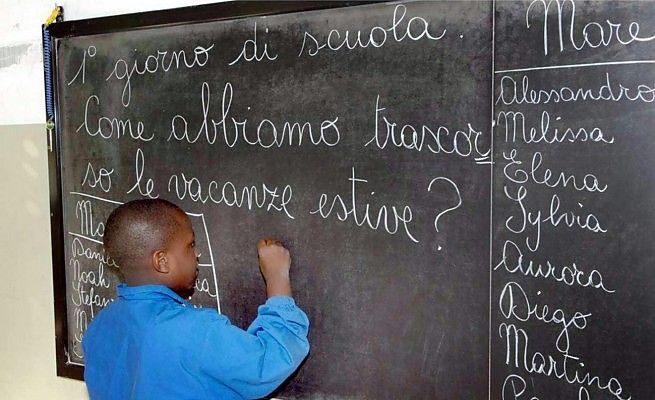 1° giorno di scuola.
Come abbiamo trascor
so le vacanze estive?
Noah
Mare
Alessandro
Melissa
Elena
Sylvia
Aurora
Diego
Martina